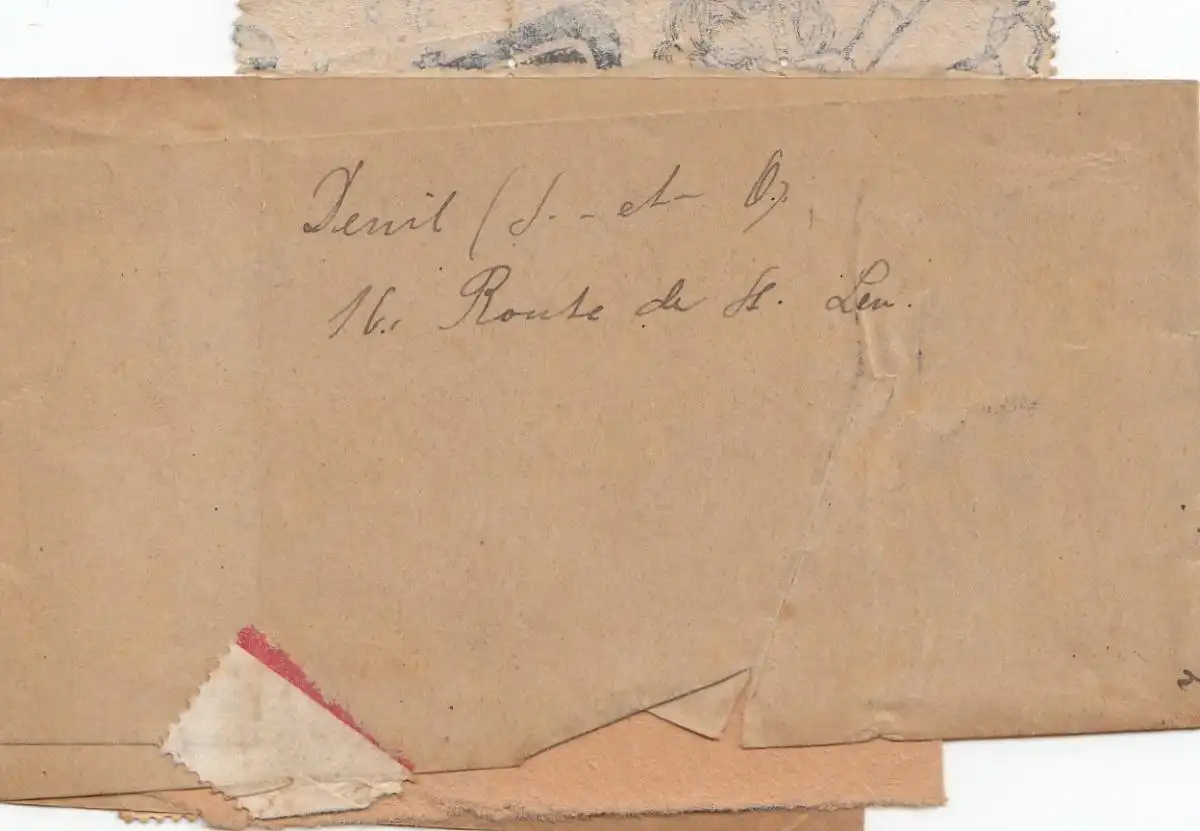 Deuil (S.-et-O)
16, Route de St. Leu.